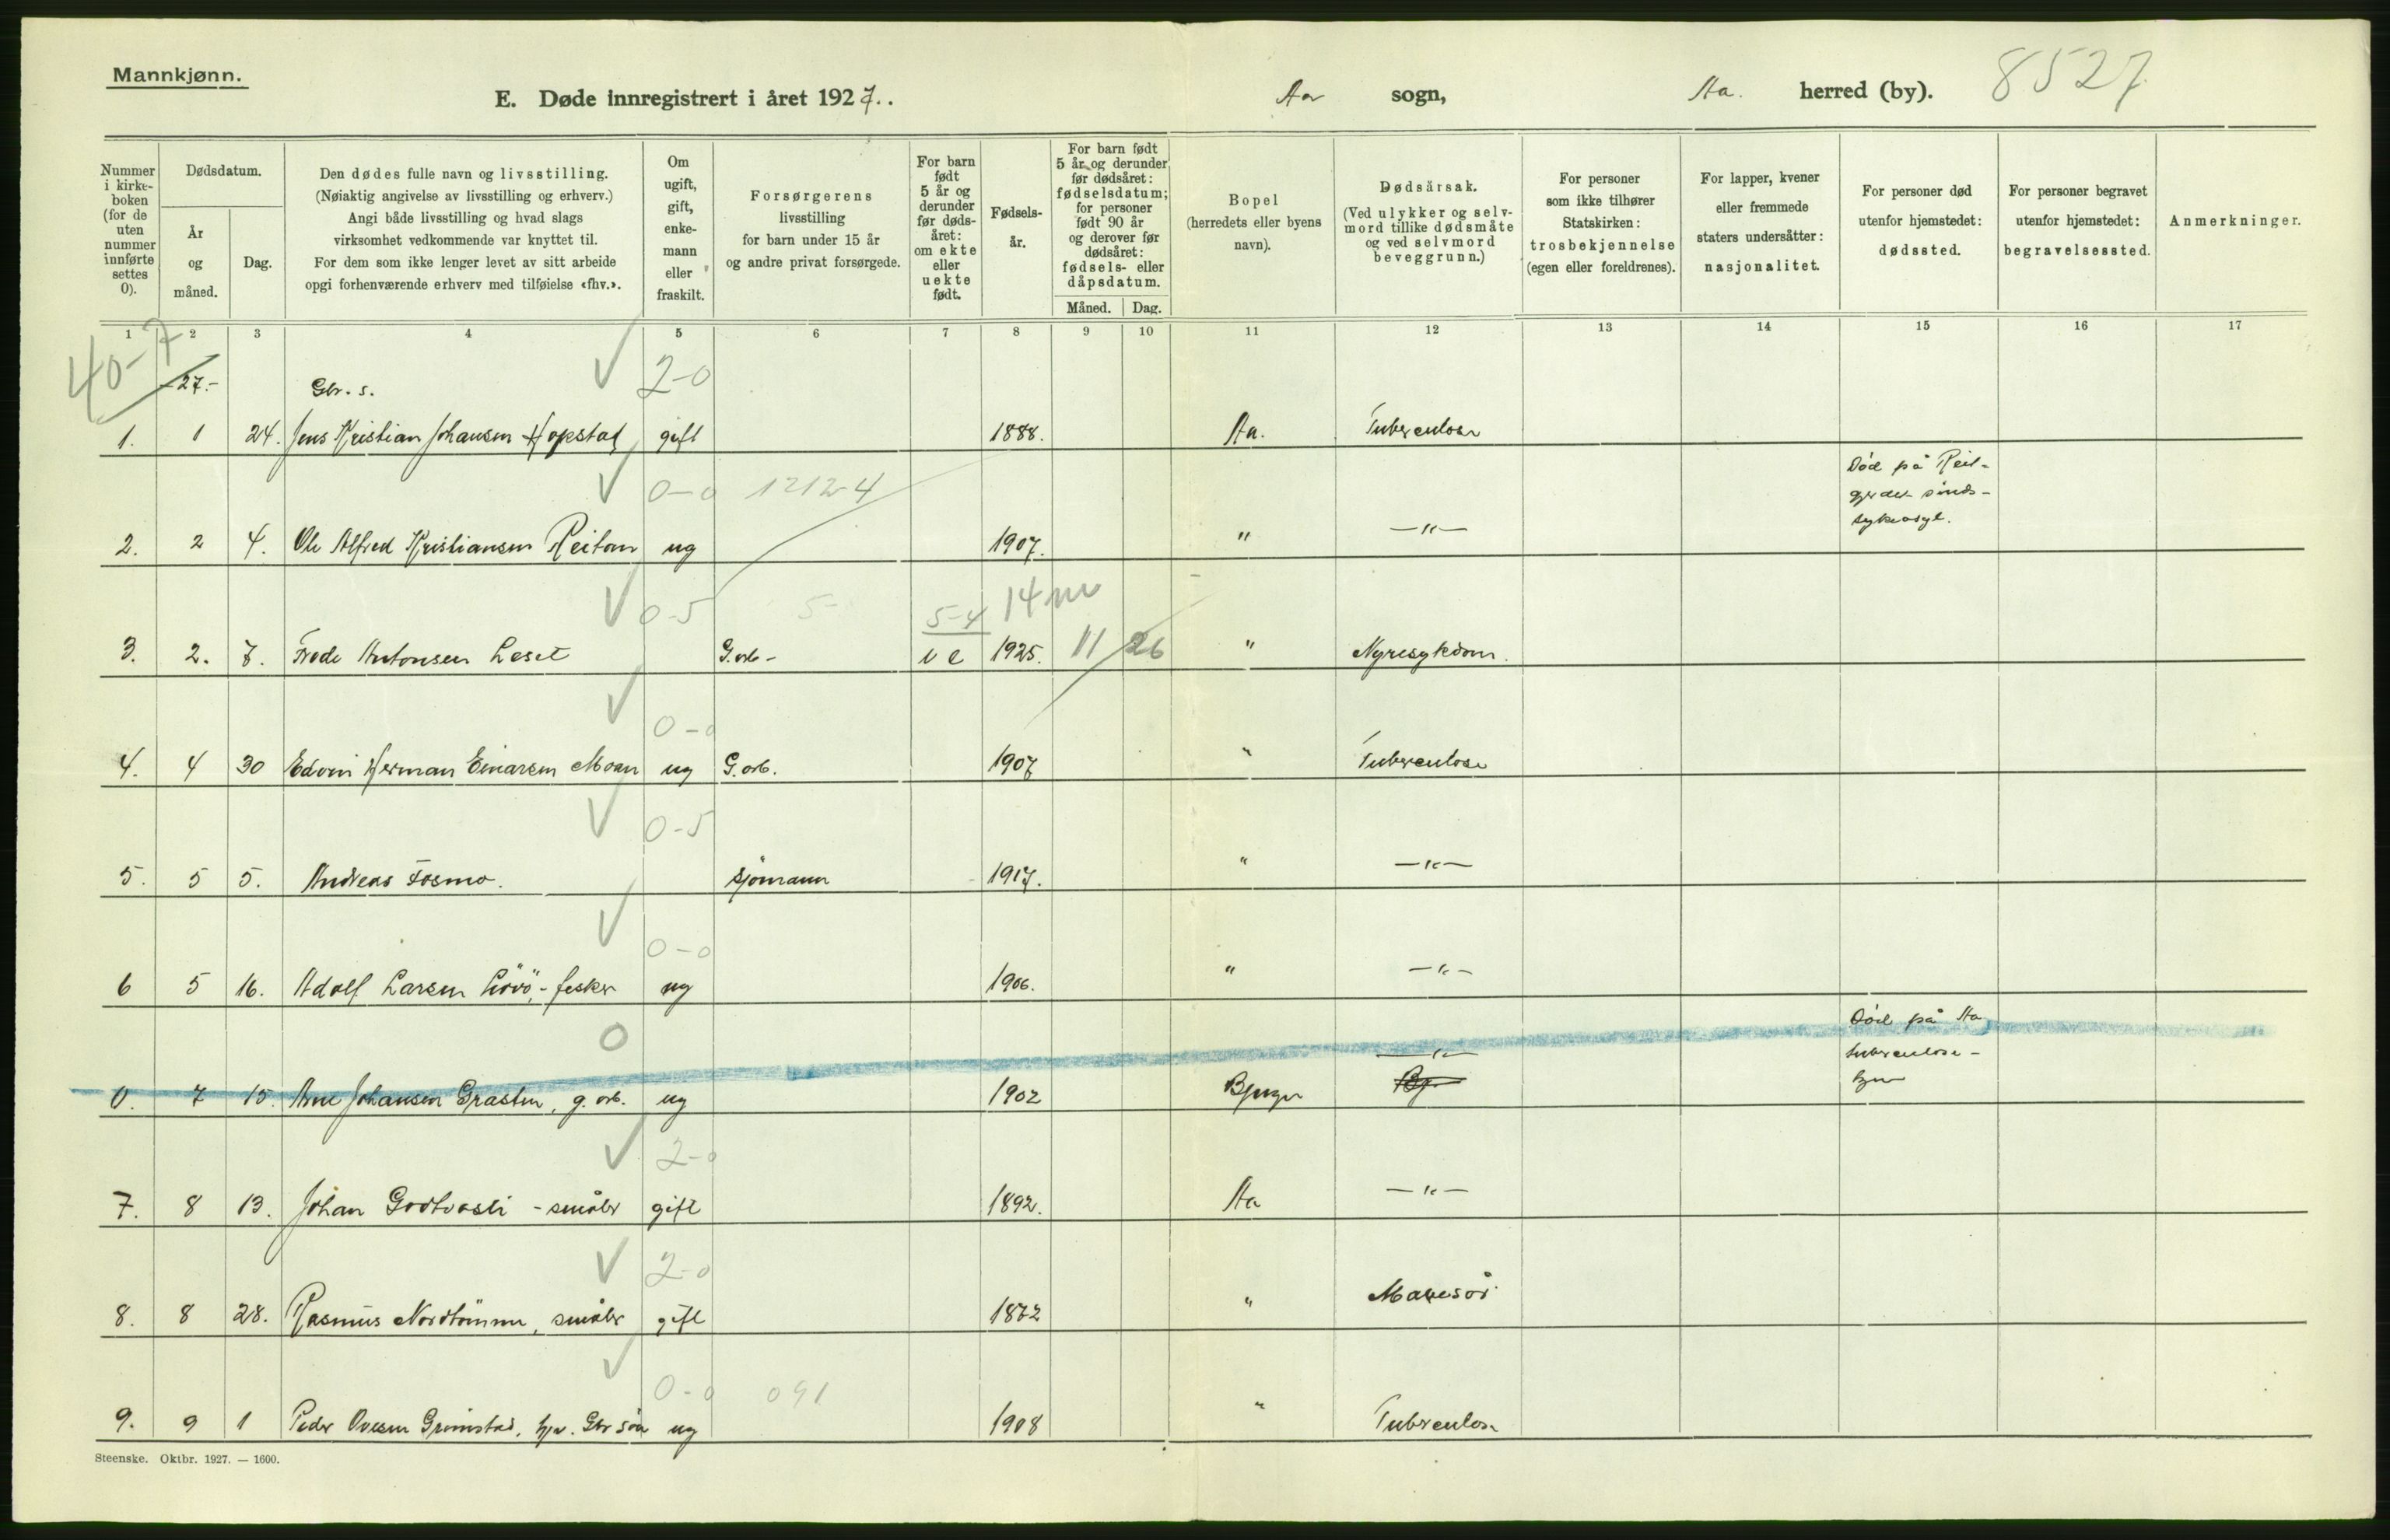 Mannkjønn.
E. Døde innregistrert i året 1927. . Aa sogn, Aa. herred (by). 8527
Nummer i kirke- boken (for de uten nummer innførte settes 0).
Dødsdatum.
År og måned.
Dag.
Den dødes fulle navn og livsstilling.
(Nøiaktig angivelse av livsstilling og erhverv.)
Angi både livsstilling og hvad slags
virksomhet vedkommende var knyttet til.
For dem som ikke lenger levet av sitt arbeide
opgi forhenværende erhverv med tilføielse «fhv.».
Om ugift, gift, enke- mann eller fraskilt.
Forsørgerens
livsstilling
for barn under 15 år
og andre privat forsørgede.
For barn født 5 år og derunder før døds- året: om ekte eller uekte født.
Fødsels- år.
For barn født 5 år og derunder før dødsåret: fødselsdatum; for personer født 90 år og derover før dødsåret: fødsels- eller dåpsdatum.
Måned. Dag.
Bopel
(herredets eller byens
navn).
Dødsårsak.
(Ved ulykker og selv-
mord tillike dødsmåte
og ved selvmord
beveggrunn.)
For personer
som ikke tilhører
Statskirken:
trosbekjennelse
(egen eller foreldrenes).
For lapper, kvener
eller fremmede
staters undersåtter:
nasjonalitet.
For personer død
utenfor hjemstedet:
dødssted.
For personer begravet
utenfor hjemstedet:
begravelsessted.
Anmerkninger.
1 2 3 4 5 6 7 8 9 10 11 12 13 14 15 16 17
40-7
-27.- Gbr. s. 2-0
1. 1 24. Jens Kristian Johansen Hopstad gift 1888. Aa. Tuberculose
0-0 12124
2. 2 4. Ole Alfred Kristiansen Reitan ug 1907. " —"— Död på Reit-
gjerdet sinds-
sykeasyl.
0-5 5- 5-4 14 m
3. 2. 7. Frode Antonsen Leset G.arb- u e 1925. 11 26 " Nyresykdom.
0-0
4. 4 30 Edvin Herman Einarsen Moan ug G.arb. 1907 " Tuberculose
0-5
5. 5 5. Andreas Fosmo. sjömann 1917. " —"—
0-0
6 5 16. Adolf Larsen Lövö,- fisker ug 1906. " —"—
0
0. 7 15. Arne Johansen Grasten, g. arb. ug 1902 Bjugn —"— Bj. Död på Aa
tuberculose-
hjem
2-0
7. 8 13. Johan Godtvasli - småbr gift 1892. Aa —"—
2-0
8. 8 28. Rasmus Nordtömme, småbr gift 1872 " Mavesår
0-0 091
9. 9 1 Peder Ovesen Grimstad, hjv. Gbr sön ug 1908 " Tuberculose
Steenske. Oktbr. 1927. — 1600.